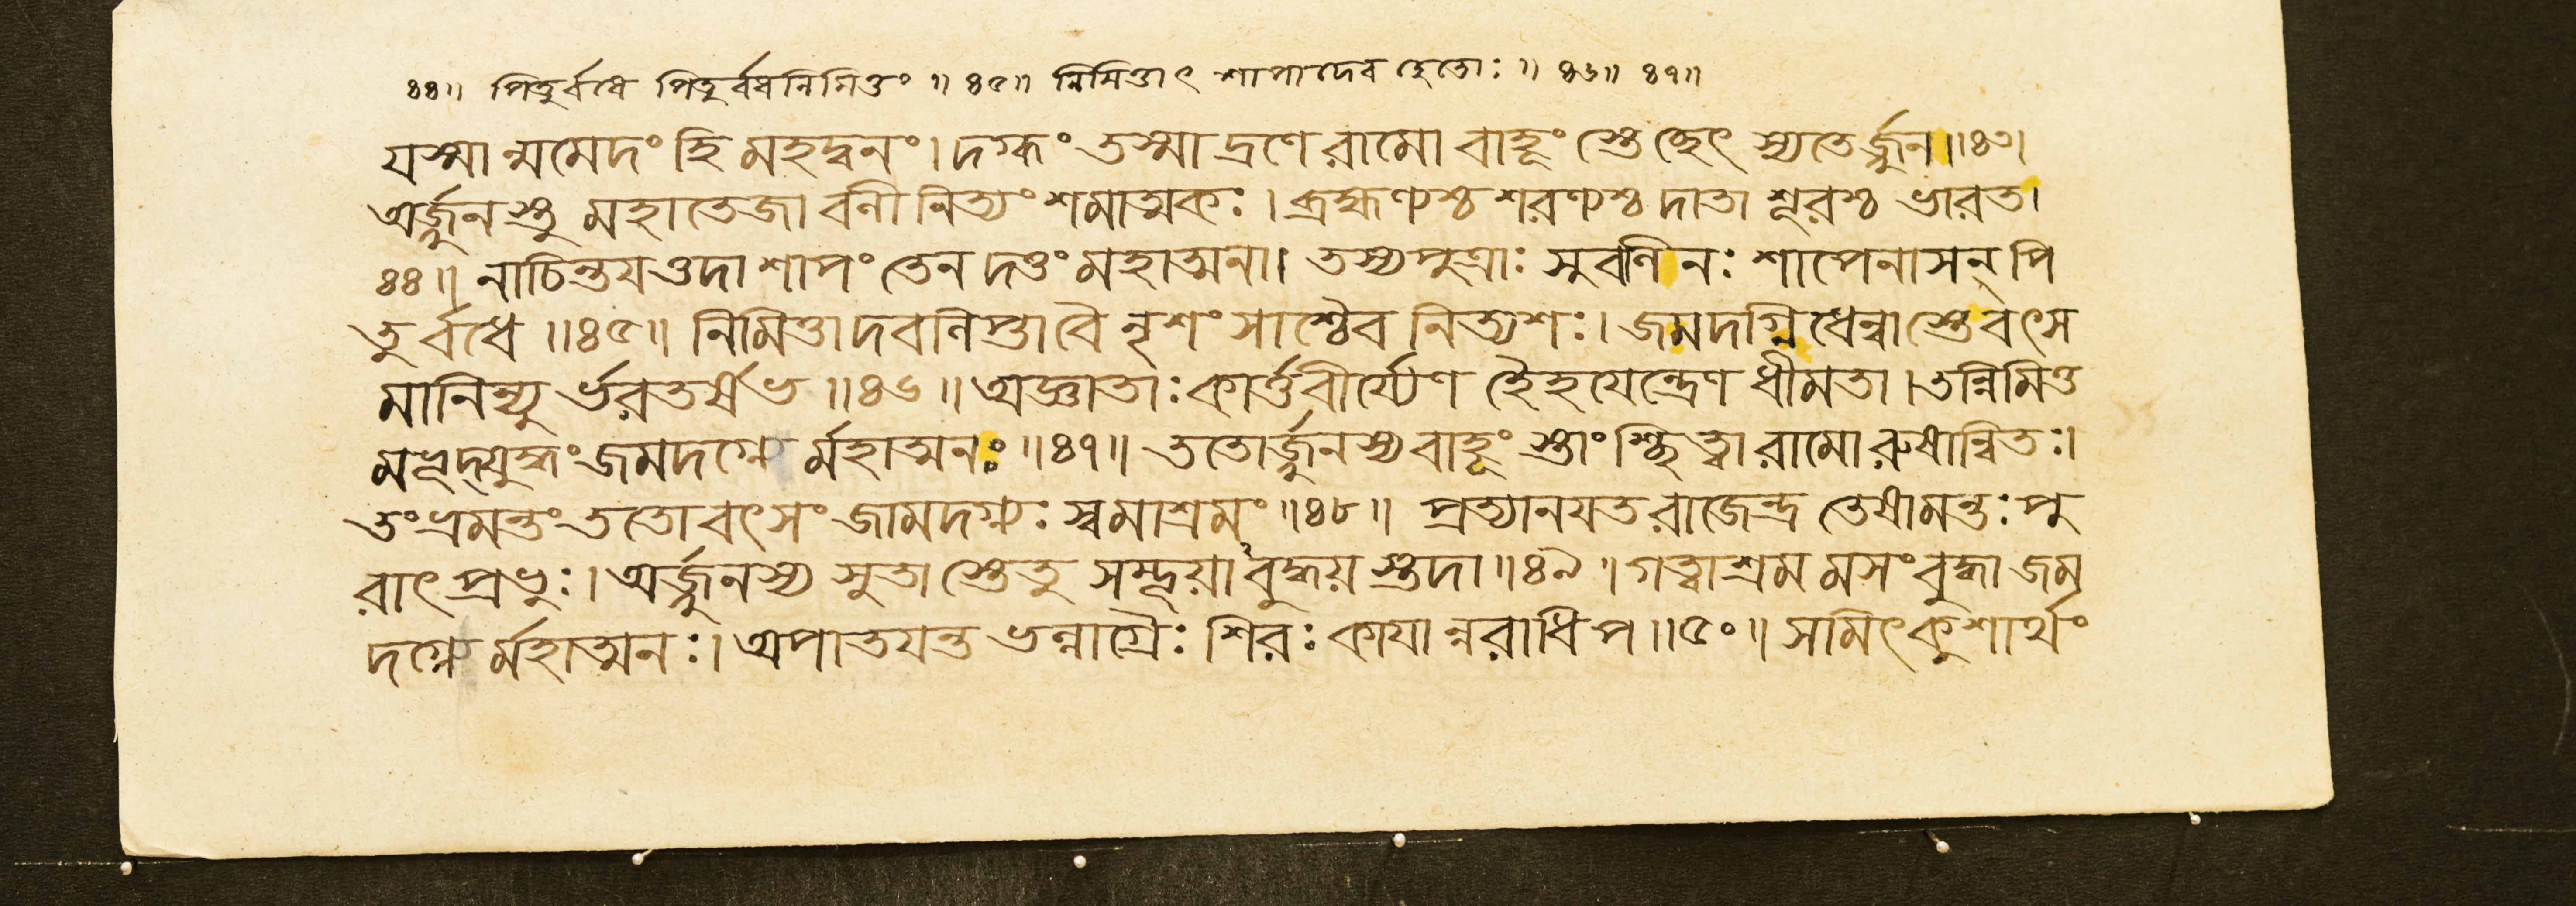 ৪৪॥ পিতুর্বধে পিতুর্বধনিমিত্তং ॥ ৪৫॥ নিমিত্তাৎ শাপাদেব হেতোঃ ॥ ৪৬॥ ৪৭॥
যস্মান্মমেদং হি মহদ্বনং। দগ্ধং তস্মাদ্রণে রামো বাহূং স্তে চ্ছেৎ স্যতের্জ্জুন॥৪৩।
অর্জ্জুনস্তু মহাতেজা বলী নিত্যং শমাত্মকঃ। ব্রহ্মণ্যশ্চ শরণ্যশ্চ দাতা শূরশ্চ ভারত।
৪৪॥ নাচিন্তয়ত্তদা শাপং তেন দত্তং মহাত্মনা। তস্য পুত্রাঃ সুবলিনঃ শাপেনাসন্ পি
তুর্বধে ॥৪৫॥ নিমিত্তাদবলিপ্তা বৈ নৃশংসাশ্চৈব নিত্যশঃ। জমদগ্নিধেন্বাস্তে বৎস
মানিন্যু র্ভরতর্ষভ ॥৪৬॥ অজ্ঞাতাঃ কার্ত্তবীর্য্যেণ হৈহয়েন্দ্রেণ ধীমতা। তন্নিমিত্ত
মভূদ্যুদ্ধং জমদগ্নে র্মহাত্মনঃ ॥৪৭॥ ততোর্জ্জুনস্য বাহূং স্তাং শ্ছিত্ত্বা রামো রুষান্বিতঃ।
তং ভ্রমন্তং ততো বৎসং জামদগ্ন্যঃ স্বমাশ্রমং ॥৪৮॥ প্রত্যানয়ত রাজেন্দ্র তেষামন্তঃপু
রাৎ প্রভুঃ। অর্জ্জুনস্য সুতাস্তে তু সম্ভূয়াবুদ্ধয়স্তদা ॥৪৯॥ গত্বাশ্রমমসংবুদ্ধা জম
দগ্নে র্মহাত্মনঃ। অপাতয়ন্ত ভল্লাগ্রৈঃ শিরঃ কায়ান্নরাধিপ ॥৫০॥ সমিৎকুশার্থং